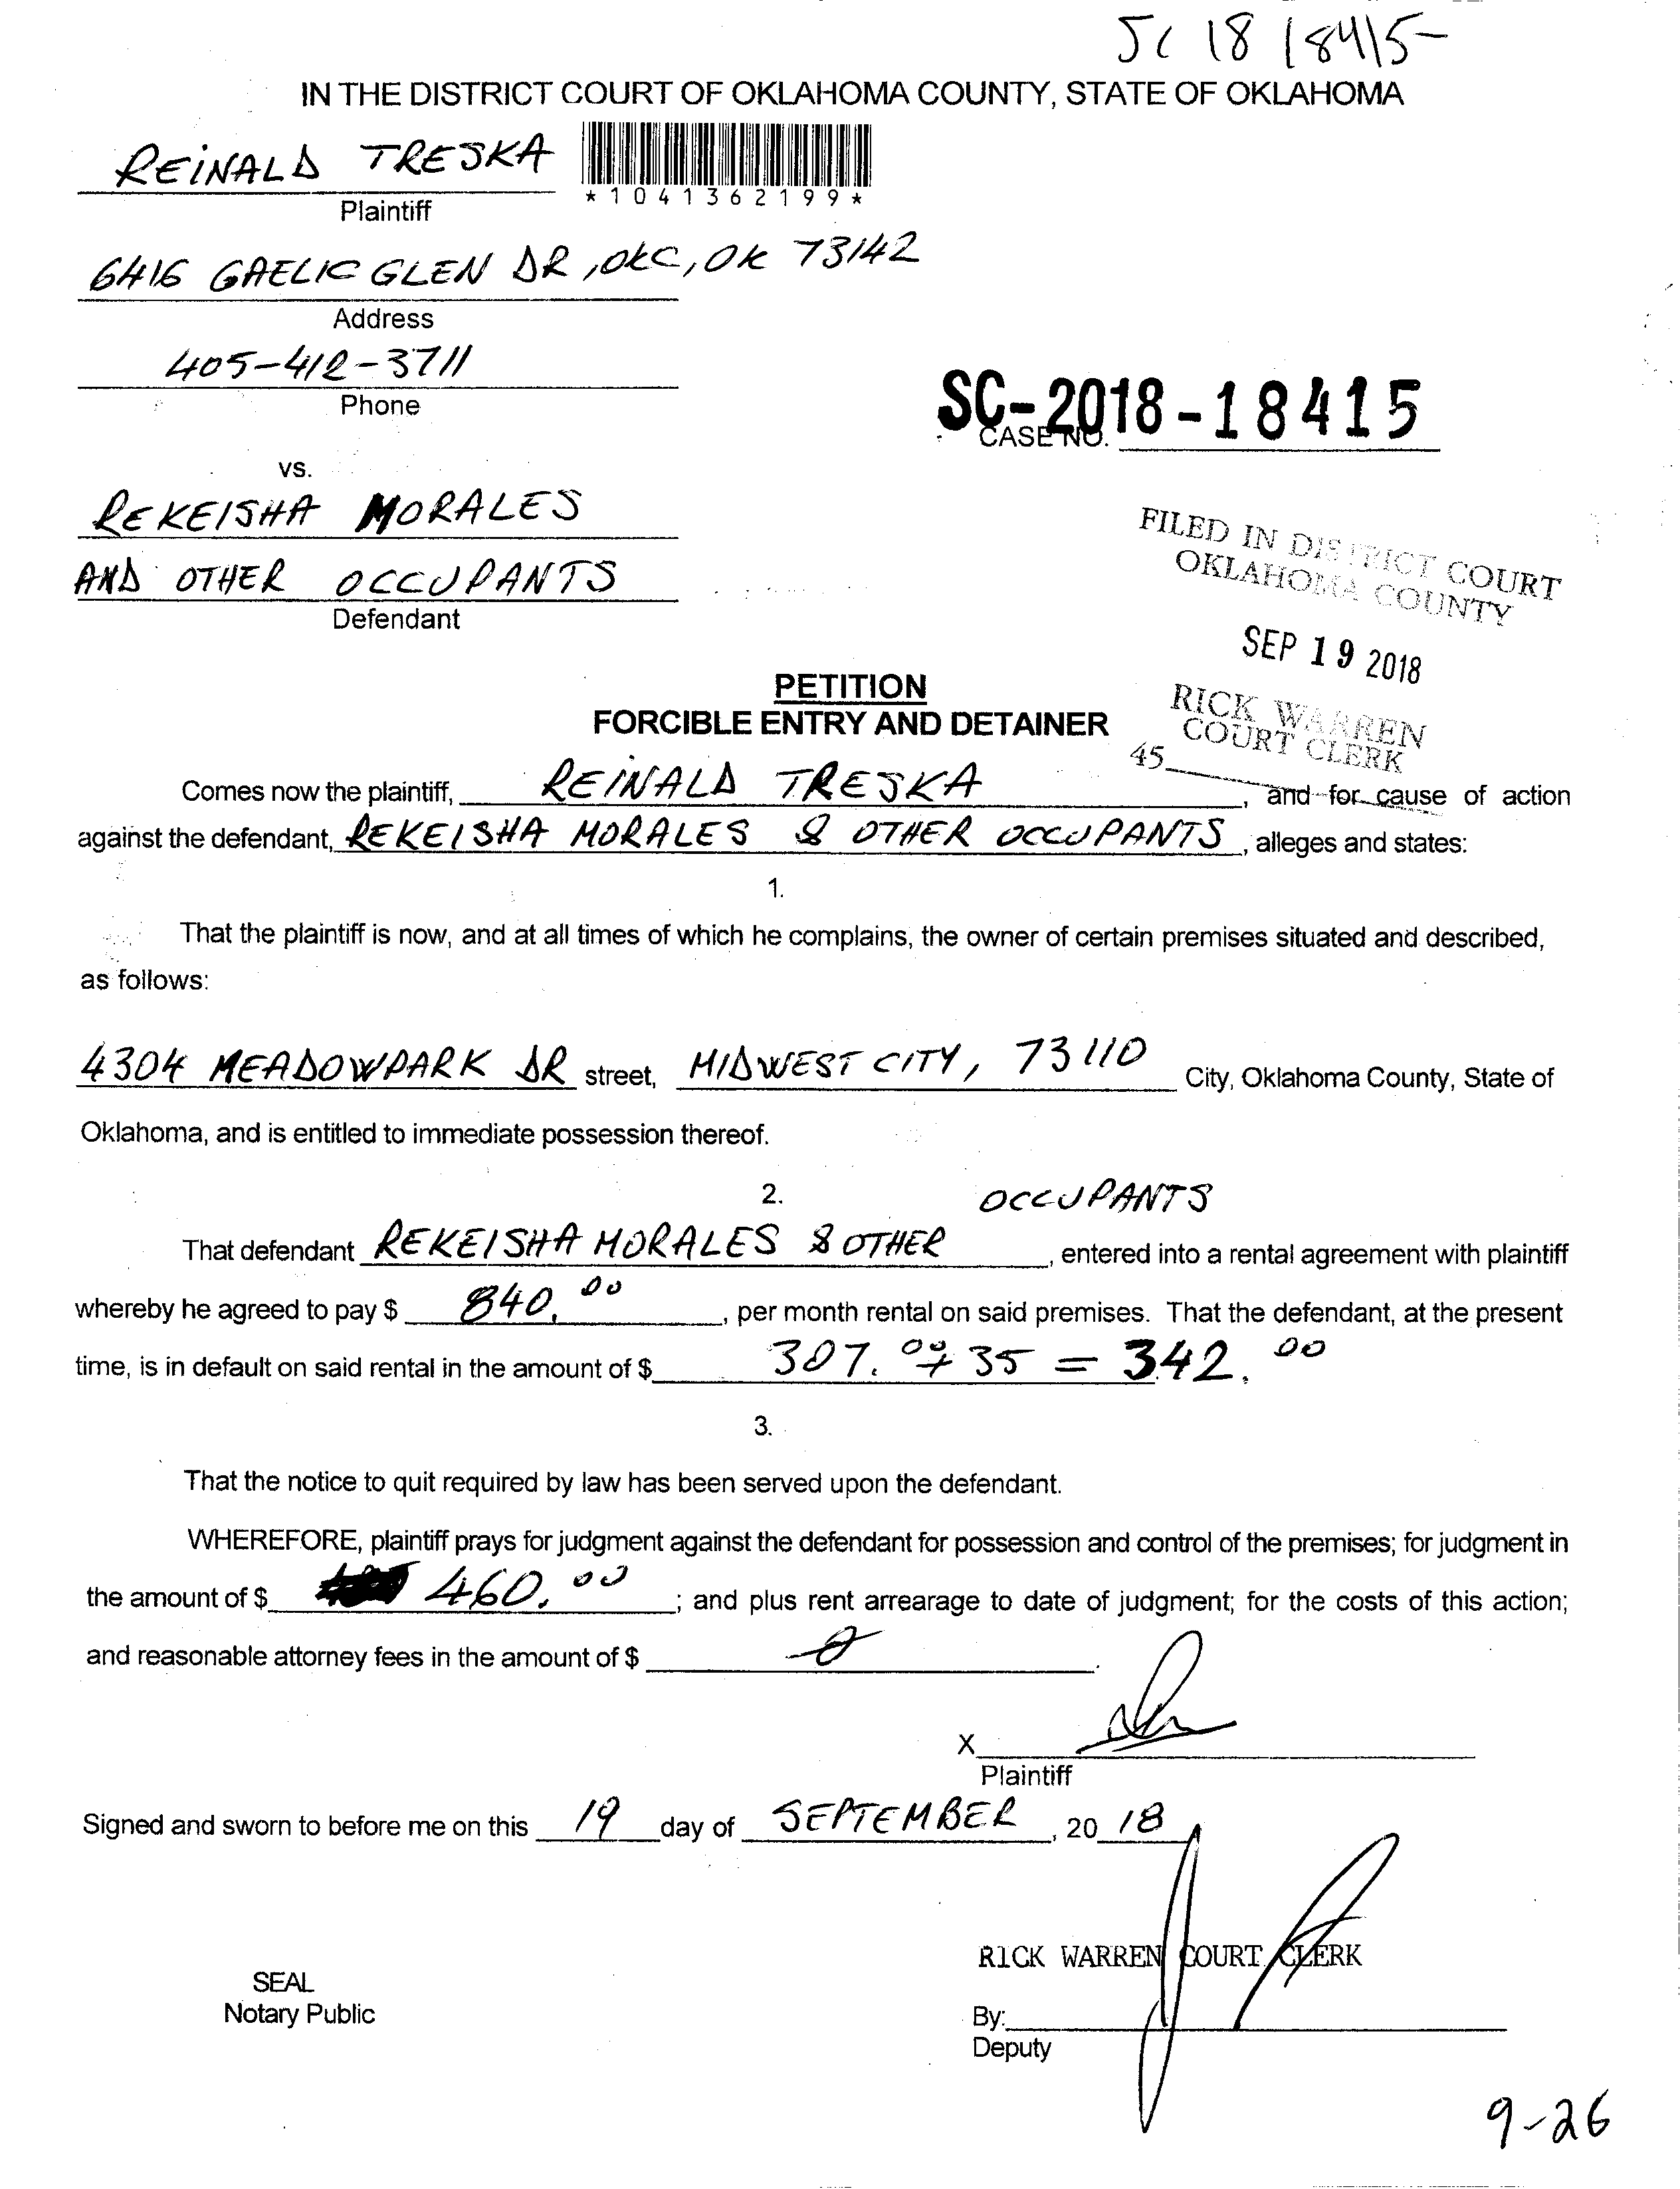 SC 18 18415
IN THE DISTRICT COURT OF OKLAHOMA COUNTY, STATE OF OKLAHOMA
REINALD TRESKA
*1041362199*
Plaintiff
6416 GAELIC GLEN DR, OKC, OK 73142
Address
405-412-3711
Phone
SC-2018-18415
CASE NO.
vs.
REKEISHA MORALES
AND OTHER OCCUPANTS
Defendant
FILED IN DISTRICT COURT
OKLAHOMA COUNTY
SEP 19 2018
RICK WARREN
COURT CLERK
45
PETITION
FORCIBLE ENTRY AND DETAINER
Comes now the plaintiff, REINALD TRESKA, and for cause of action
against the defendant, REKEISHA MORALES & OTHER OCCUPANTS, alleges and states:
1.
That the plaintiff is now, and at all times of which he complains, the owner of certain premises situated and described,
as follows:
4304 MEADOWPARK DR street, MIDWEST CITY, 73110 City, Oklahoma County, State of
Oklahoma, and is entitled to immediate possession thereof.
2.
OCCUPANTS
That defendant REKEISHA MORALES & OTHER, entered into a rental agreement with plaintiff
whereby he agreed to pay $ 840.00, per month rental on said premises. That the defendant, at the present
time, is in default on said rental in the amount of $ 307.00 + 35 = 342.00
3.
That the notice to quit required by law has been served upon the defendant.
WHEREFORE, plaintiff prays for judgment against the defendant for possession and control of the premises; for judgment in
the amount of $ 460.00; and plus rent arrearage to date of judgment; for the costs of this action;
and reasonable attorney fees in the amount of $ 0.
X
Plaintiff
Signed and sworn to before me on this 19 day of SEPTEMBER, 20 18
RICK WARREN COURT CLERK
SEAL
Notary Public
By:
Deputy
9-26